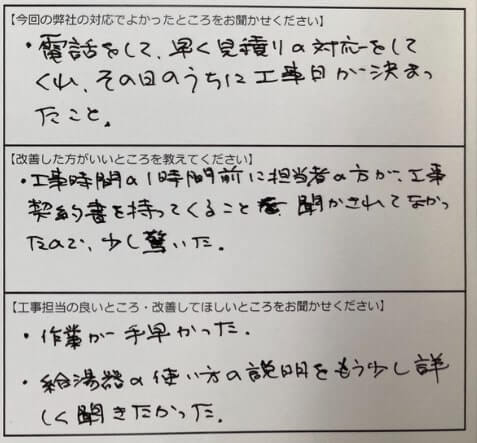 【今回の弊社の対応でよかったところをお聞かせください】
・電話をして、早く見積りの対応をして
くれ、その日のうちに工事日が決まっ
たこと。
【改善した方がいいところを教えてください】
・工事時間の1時間前に担当者の方が、工事
契約書を持ってくることを、聞かされてなかっ
たので、少し驚いた。
【工事担当の良いところ・改善してほしいところをお聞かせください】
・作業が手早かった。
・給湯器の使い方の説明をもう少し詳
しく聞きたかった。